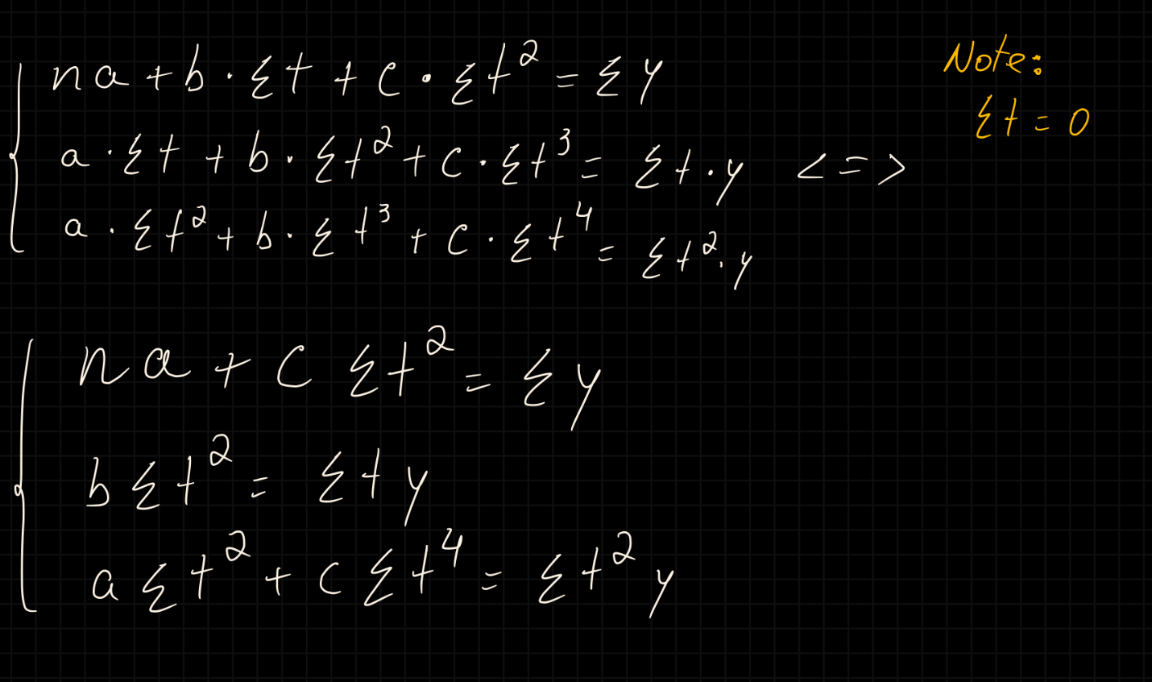 na + b · Σt + c · Σt² = Σy
Note:
Σt = 0
a · Σt + b · Σt² + c · Σt³ = Σt · y <=>
a · Σt² + b · Σt³ + c · Σt⁴ = Σt² · y
na + c Σt² = Σy
bΣt² = Σty
aΣt² + cΣt⁴ = Σt²y